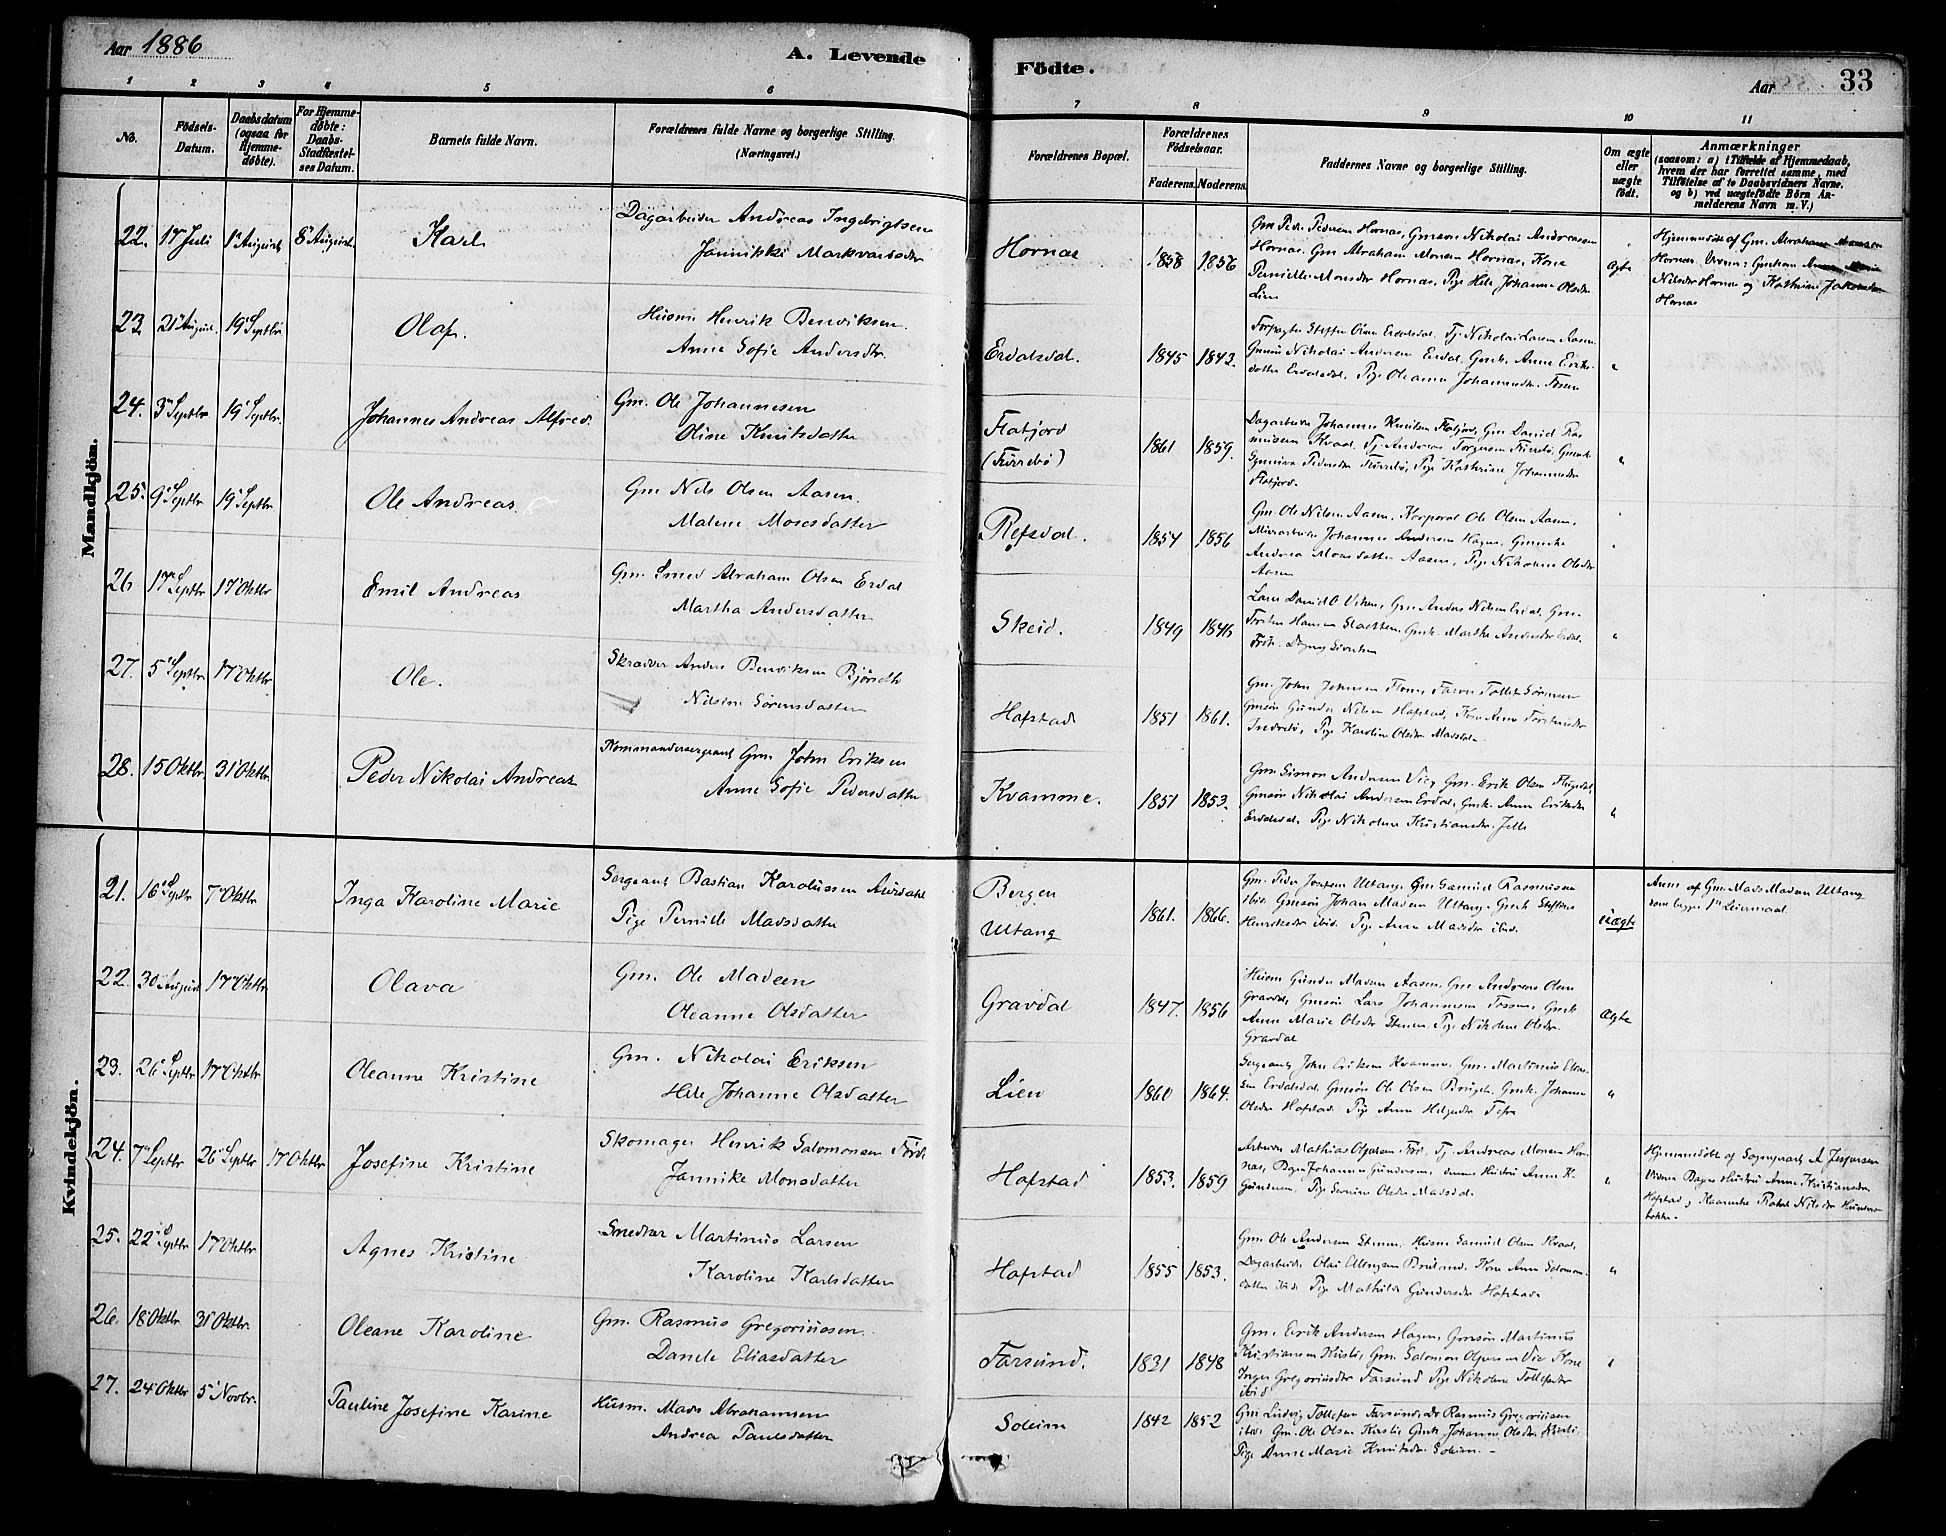 Aar 1886
A. Levende
Födte.
Aar
33
1 2 3 4 5 6 7 8 9 10 11
No.
Födsels-Datum.
Daabsdatum (ogsaa for Hjemme-döbte).
For Hjemme-döbte: Daabs-Stadfæstelses Datum.
Barnets fulde Navn.
Forældrenes fulde Navne og borgerlige Stilling. (Næringsvei.)
Forældrenes Bopæl.
Forældrenes Födselsaar.
Faderens. Moderens.
Faddernes Navne og borgerlige Stilling.
Om ægte eller uægte födt.
Anmærkninger
(saasom: a) i Tilfælde af Hjemmedaab,
hvem der har forrettet samme, med
Tilföielse af to Daabsvidners Navne,
og b) ved uægtefödte Börn An-
melderens Navn m. V.)
Mandkjön.
22. 17 Juli 1 August 8 August Karl
Dagarbeider Andreas Ingebrigtsen
Jannikke Markvardsdtr
Hornæs 1858 1856
Gm Peder Pedersen Hornæs, Gmsøn Nikolai Andreassen
Hornæs, Gm Abraham Monsen Hornæs, Kone
Pernille Monsdtr Hornæs, Pige Hele Johanne Olsdtr
Lien
ægte
Hjemmedöbt af Gm. Abraham Monsen
Hornæs
Nilsdtr Hornæs og Kathrine
Hornæs
23. 21 August 19 Septbr Olaf.
Husm Henrik Bendiksen.
Anne Sofie Andersdtr.
Erdalsdal. 1845 1843.
Forpagter Steffen Olsen Erdalsdal, Tj. Nikolai Larsen Aasen
Gmsøn Nikolai Andersen Erdal, Gmk. Anne Eriks-
datter Erdalsdal, Pige Oleanna Johannesdtr.
"
24. 3 Septbr 19 Septbr. Johannes Andreas Alfred.
Gm. Ole Johannesen
Oline Knutsdatter
Flatjord
(Furrebö)
1861 1859.
Dagarbeider Johannes Knutsen Flatjord, Gm David Ras
mussen Kvaal, Tj. Andreas Torgersen Furrebö, Gmk
Synneva Pedersdtr Furrebö, Pige Kathrine Johannesdtr
Flatjord.
"
25. 9 Septbr 19 Septbr Ole Andreas.
Gm Nils Olsen Aasen.
Malene Mosesdatter
Refsdal. 1854 1856
Gm Ole Nilsen Aasen, Korporal Ole Olsen Aasen,
Murarbeider Johannes Andersen Hagen, Gmenke
Andrea Monsdatter Aasen, Pige Nikoline Olsdtr
Aasen
26 17 Septbr 17 Oktbr Emil Andreas
Gm. Smed Abraham Olsen Erdal
Martha Andersdatter
Skeid. 1849 1846
Lars David O Viken, Gm Anders Nilsen Erdal, Gm.
Torsten Hansen Gmk. Marthe Andersdtr Erdal
Frk. Dagny
"
27. 5 Septbr 17 Oktbr Ole.
Skræder Anders Bendiksen Björseth
Nilsine Sörensdatter
Hafstad 1851 1861.
Gm. John Johnsen Tollef Sörensen
Gmsøn Gunder Nilsen Hafstad, Kone Anne Torstensdtr
Indrebö, Pige Karoline Olsdtr
28. 15 Oktbr. 31 Oktbr. Peder Nikolai Andreas
Kommandersergeant Gm. John Eriksen
Anne Sofie Pedersdatter
Kvamme. 1851 1853.
Gm Simon Andersen Vie, Gm. Erik Olsen
Gmsøn Nikolai Andersen Erdal, Gmk. Anne Eriksdtr
Erdalsdal, Pige Nikoline Kristiansdtr.
"
Kvindekjön.
21. 16 Septbr 7 Oktbr Inga Karoline Marie
Sergeant Bastian Karolussen Aurdahl
Pige Pernille Madsdatter
Bergen
Ultang
1861. 1866.
Gm. Peder Ultang, Gm Samuel Rasmussen
ibid. Gmsøn Johan Madsen Ultang, Gmk Steffine
Henriksdtr ibid. Pige Anne Madsdtr ibid.
uægte
Anm. af Gm. Mads Madsen Ultang
som begges 1ste Leiermaal
22. 30 August 17 Oktbr Olava
Gm. Ole Madsen
Oleanne Olsdatter
Gravdal 1847. 1856
Husm Gunder Madsen Aasen, Gm Andreas Olsen
Gravdal, Gmsøn Lars Johannesen Fossen, Gmk
Anne Marie Olsdtr Steen. Pige Nikoline Olsdtr.
Gravdal
Ægte
23. 26 Septbr 17 Oktbr Oleanne Kristine
Gm. Nikolai Eriksen
Hele Johanne Olsdatter
Lien 1860 1864.
Sergeant John Eriksen Kvamme, Gm. Martinus
Erdalsdal, Gmsøn Ole Olsen Gmk. Johanne
Olsdtr Hafstad. Pige Anne Helgesdtr
"
24. 7 Septbr 26 Septbr 17 Oktbr Josefine Kristine
Skomager Henrik Salomonsen Förde
Jannike Monsdatter
Hafstad 1853. 1859
Arbeider Mathias Olsen Förde, Tj. Andreas Monsen Hor-
næs, Bager Johannes Gundersen, dennes Hustru Anne K.
Gundersen, Pige Olsdtr
"
Hjemmedöbt af Sogneprest A Jespersen
Vidner Bager Hustru Anne Kristiansdtr
Hafstad og Rakel Nilsdtr
25. 22 Septbr 17 Oktbr Agnes Kristine
Snedker Martinus Larsen
Karoline Karlsdatter
Hafstad 1855 1853.
Gm. Ole Andersen Steen, Husm Samuel Olsen Kvaal,
Dagarbeider Olai Ellingsen Bruland, Kone Anne Salomons-
datter ibid. Pige Mathilde Gundersdtr Hafstad
"
26. 18 Oktbr. 31 Oktbr. Oleane Karoline
Gm. Rasmus Gregoriussen.
Danele Eliasdatter
Farsund. 1831 1848
Gm. Eirik Andersen Hagen, Gmsøn Martinus
Kristiansen Kusli, Gm. Salomon Olsen Vie, Kone
Inger Gregoriusdtr Farsund Pige Nikoline Tollefsdtr
ibid
27. 24 Oktbr 5 Novbr. Pauline Josefine Karine
Husm. Mads Abrahamsen
Andrea Paulsdatter
Soleim 1842 1852
Gm Ludvig Tollefsen Farsund, Do Rasmus Gregoriussen
ibid. Gm. Ole Olsen Kusli, Gmk Johanne Olsdtr Kusli.
Pige Anne Marie Knutsdtr. Soleim. –